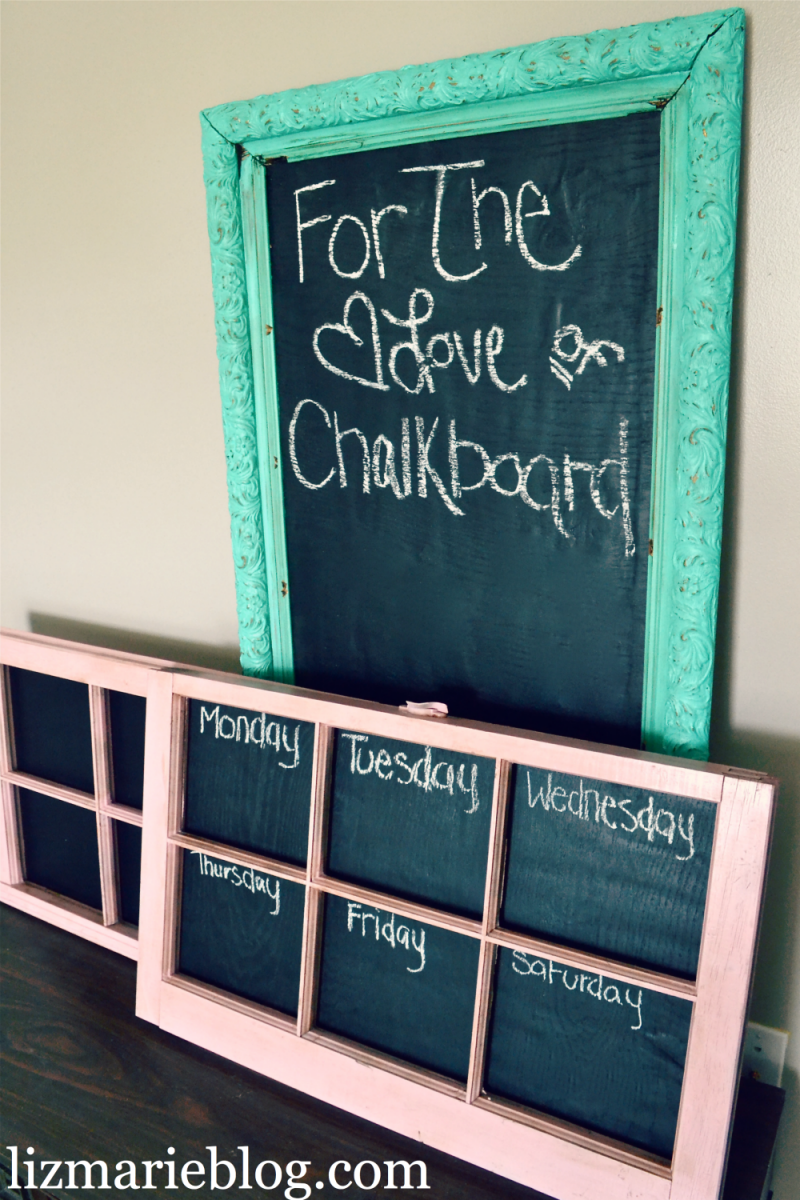 For The
Love of
Chalkboard
Monday Tuesday Wednesday
Thursday Friday Saturday
lizmarieblog.com